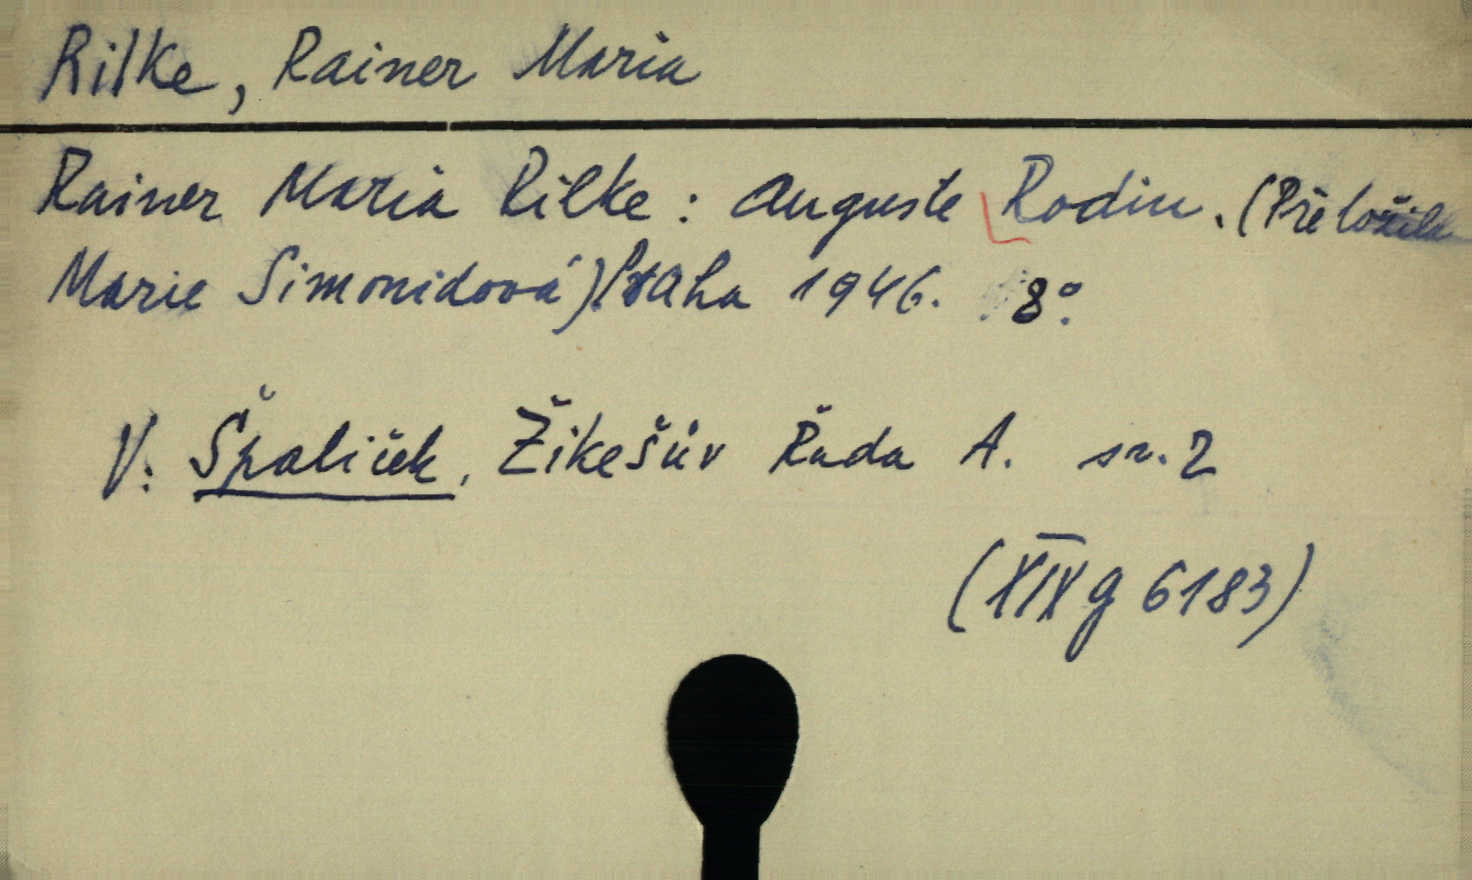 Rilke, Rainer Maria
Rainer Maria Rilke: Auguste Rodin. (Přeložila
Marie Simonidová) Praha 1946. 8°.
V: Špaliček, Žikešův Řada A. sv. 2
(XIX g 6183)